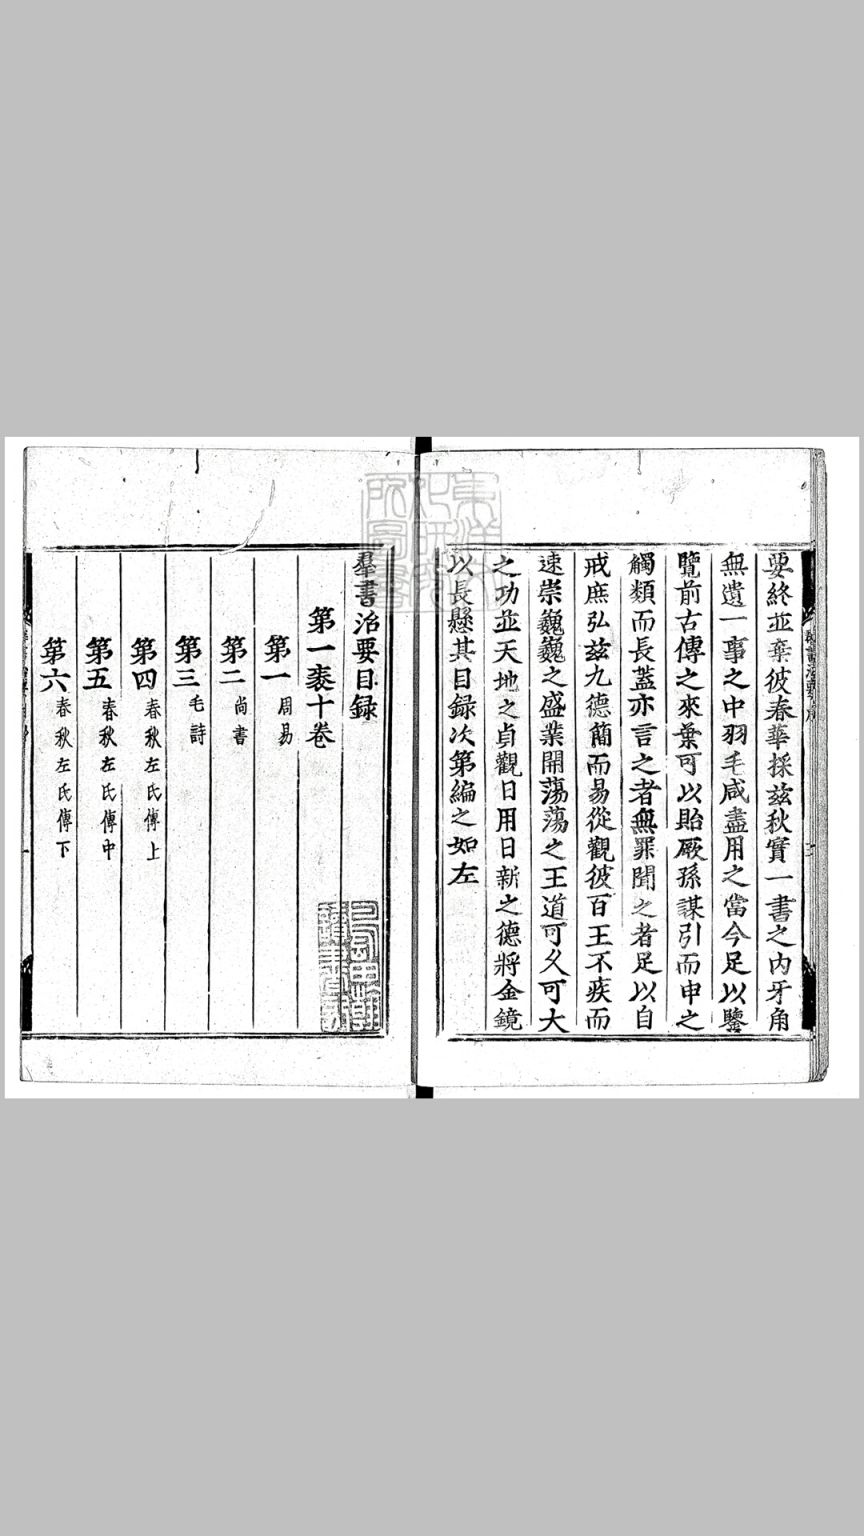 要終並棄彼春華採茲秋實一書之内牙角
無遺一事之中羽毛咸盡用之當今足以鑒
覽前古傳之來葉可以貽厥孫謀引而申之
觸類而長蓋亦言之者無罪聞之者足以自
戒庶弘茲九德簡而易從觀彼百王不疾而
速崇巍巍之盛業開蕩蕩之王道可久可大
之功並天地之貞觀日用日新之德將金鏡
以長懸其目録次第編之如左
羣書治要目録
第一袠十卷
第一 周易
第二 尚書
第三 毛詩
第四 春秋左氏傳上
第五 春秋左氏傳中
第六 春秋左氏傳下